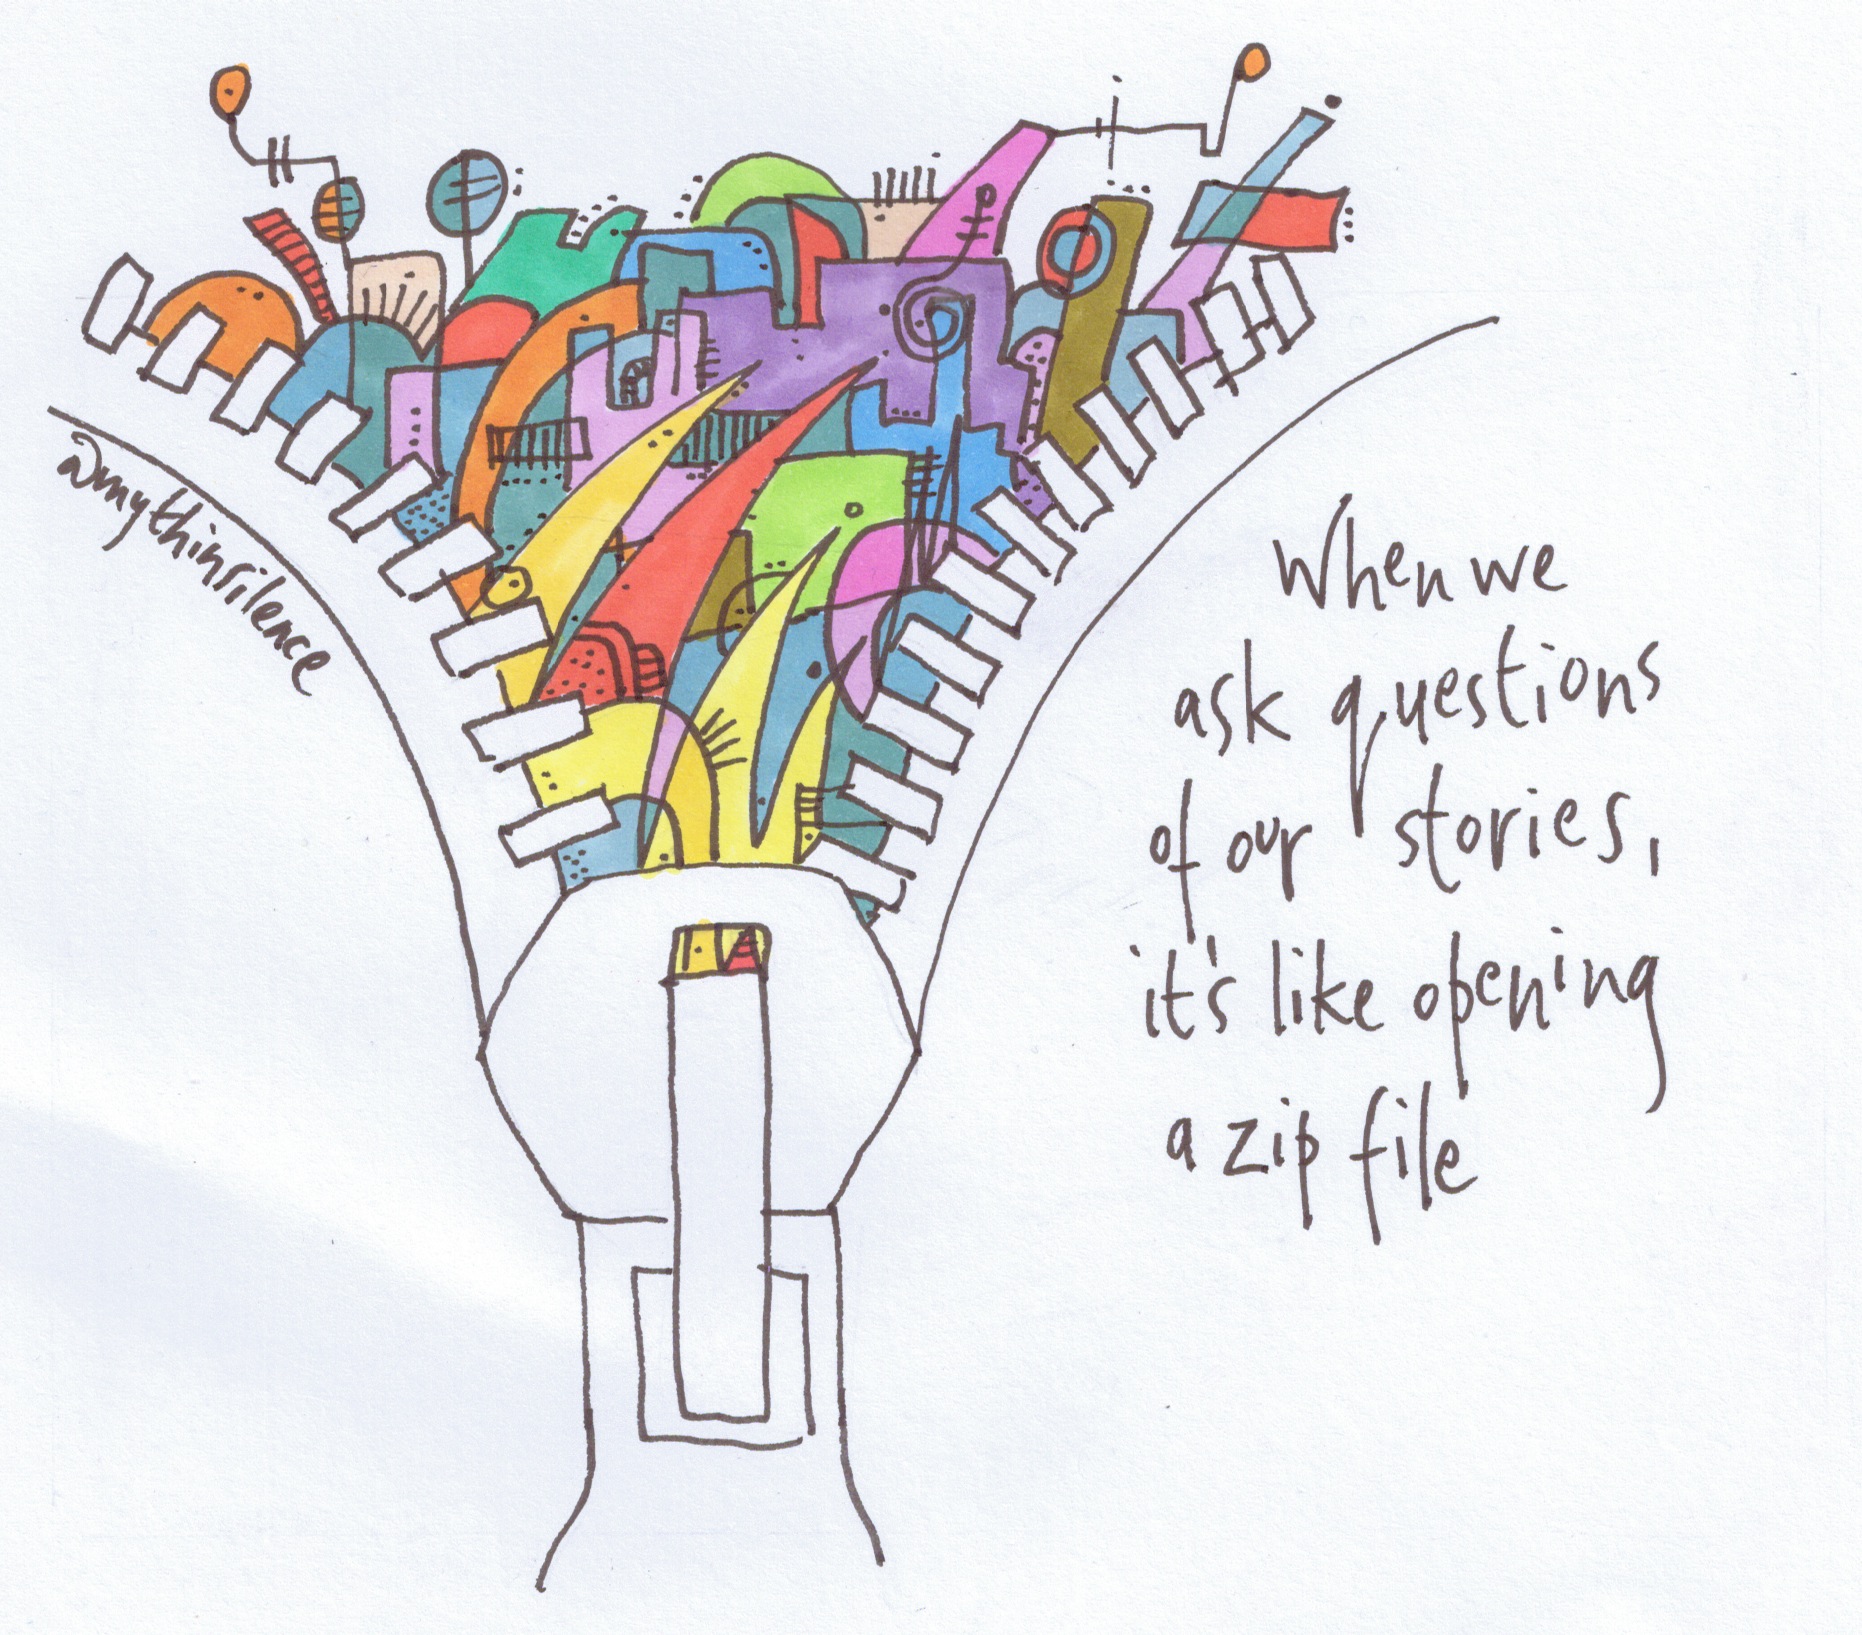 @mythinsilence
When we
ask questions
of our stories,
it's like opening
a zip file